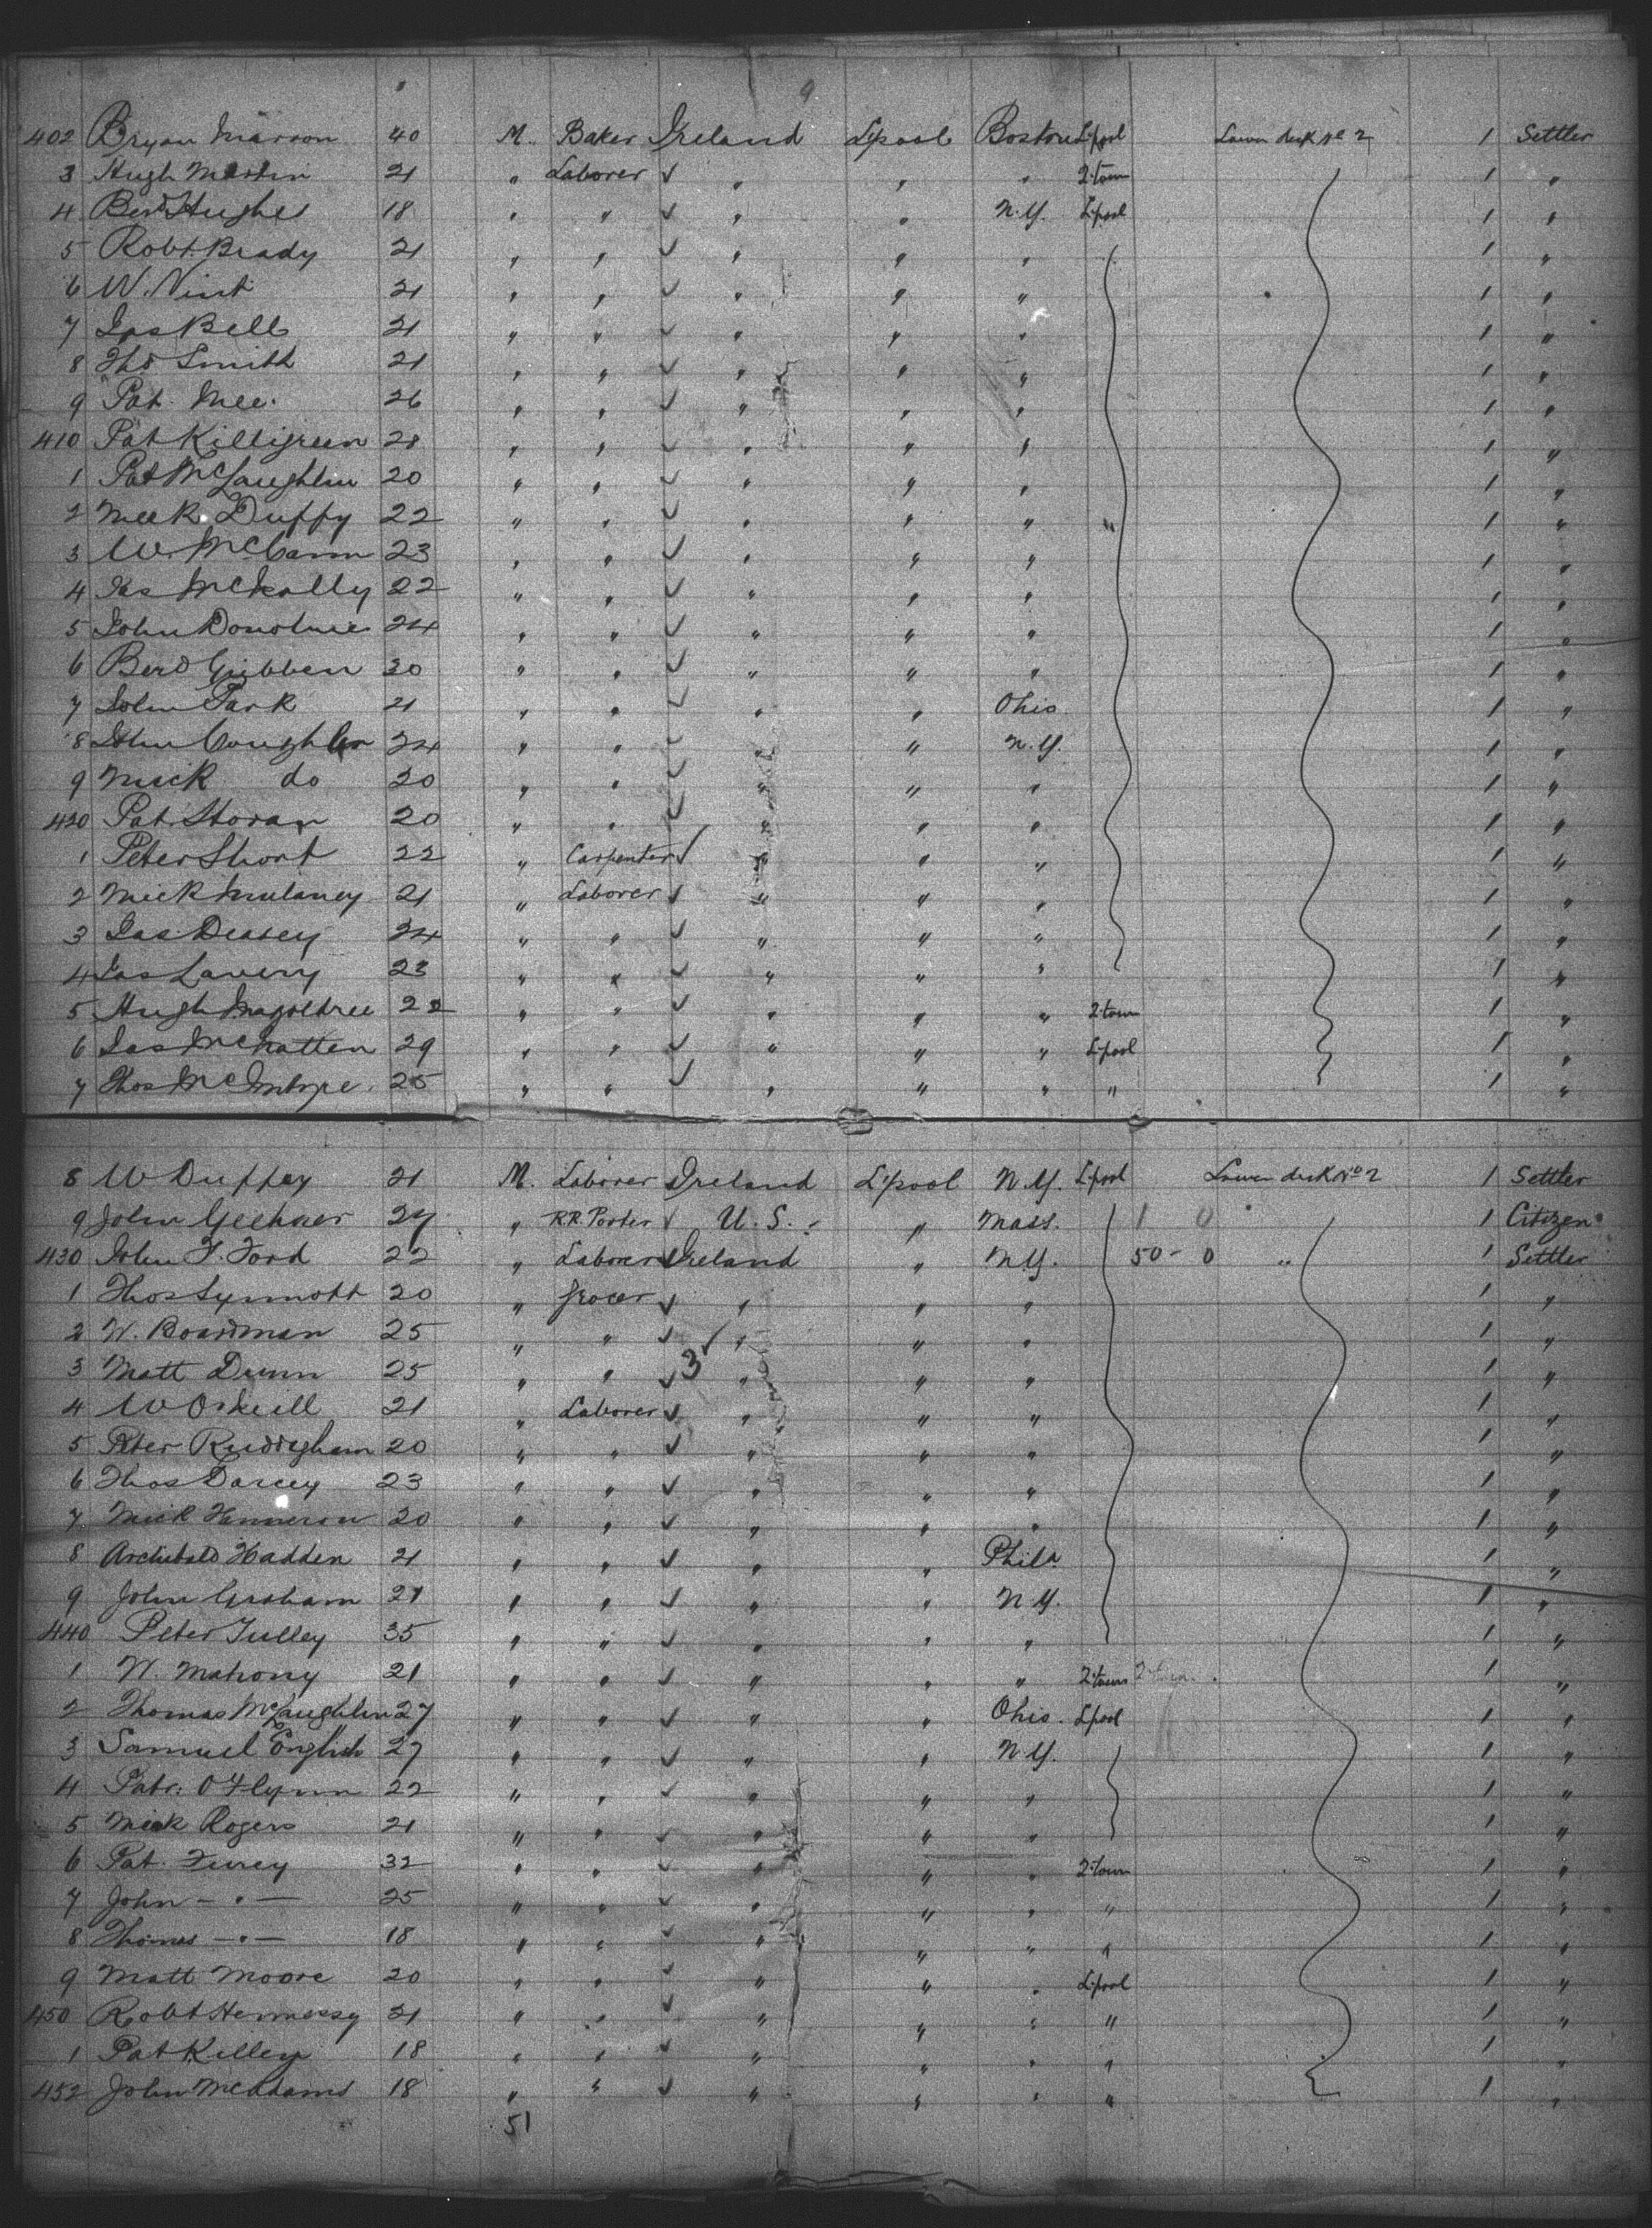 9
402 Bryan Marron 40 M. Baker Ireland L'pool Boston L'pool Lower deck No 2 1 Settler
3 Hugh Martin 21 " Laborer ✓ " " " Q.town 1 "
4 Berd Hughes 18 " " ✓ " " N.Y. L'pool 1 "
5 Robt. Brady 21 " " ✓ " " " 1 "
6 W. Vint 21 " " ✓ " " " 1 "
7 Jas Bell 21 " " ✓ " " " 1 "
8 Thos Smith 21 " " ✓ " " " 1 "
9 Pat. Mee. 26 " " ✓ " " " 1 "
410 Pat Killigreen 28 " " ✓ " " " 1 "
1 Pat McLaughlin 20 " " ✓ " " " 1 "
2 Mick Duffy 22 " " ✓ " " " " 1 "
3 W. McCann 23 " " ✓ " " " 1 "
4 Jas McNally 22 " " ✓ " " " 1 "
5 John Donohue 24 " " ✓ " " " 1 "
6 Berd Gibben 30 " " ✓ " " " 1 "
7 John Park 21 " " ✓ " " Ohio 1 "
8 John Coughlin 24 " " ✓ " " N.Y. 1 "
9 Mick do 20 " " ✓ " " " 1 "
420 Pat. Horan 20 " " ✓ " " " 1 "
1 Peter Short 22 " Carpenter ✓ " " " 1 "
2 Mick Mulaney 21 " Laborer ✓ " " " 1 "
3 Jas. Deasey 24 " " ✓ " " " 1 "
4 Jas Lavery 23 " " ✓ " " " 1 "
5 Hugh 22 " " ✓ " " " Q.town 1 "
6 Jas McNatten 29 " " ✓ " " " L'pool 1 "
7 Thos McIntyre. 25 " " ✓ " " " " 1 "
8 W Duffey 21 M. Laborer Ireland L'pool N.Y. L'pool Lower deck No 2 1 Settler
9 John 27 " R.R. Porter ✓ U.S. " Mass. 1 0 1 Citizen
430 John F. Ford 22 " Laborer Ireland " N.Y. 50 - 0 " 1 Settler
1 Thos Synnott 20 " Grocer ✓ " " " 1 "
2 W. Boardman 25 " " ✓ ✓ " " " 1 "
3 Matt Dunn 25 " " ✓ 3 " " " 1 "
4 W O'Neill 21 " Laborer ✓ " " " 1 "
5 Peter 20 " " ✓ " " " 1 "
6 Thos Darcey 23 " " ✓ " " " 1 "
7 Mick 20 " " ✓ " " " 1 "
8 Archibald Hadden 21 " " ✓ " " Phila. 1 "
9 John Graham 21 " " ✓ " " N.Y. 1 "
440 Peter Tulley 35 " " ✓ " " " 1 "
1 W. Mahony 21 " " ✓ " " " Q.town Q.town. 1 "
2 Thomas McLaughlin 27 " " ✓ " " Ohio. L'pool 1 "
3 Samuel English 27 " " ✓ " " N.Y. 1 "
4 Patr: O'Flynn 22 " " ✓ " " " 1 "
5 Mick Rogers 21 " " ✓ " " " 1 "
6 Pat. Furey 32 " " ✓ " " " Q.town 1 "
7 John — " — 25 " " ✓ " " " " 1 "
8 Thomas — " — 18 " " ✓ " " " " 1 "
9 Matt Moore 20 " " ✓ " " " L'pool 1 "
450 Robt Hennessy 21 " " ✓ " " " " 1 "
1 Pat Killey 18 " " ✓ " " " " 1 "
452 John McAdams 18 " " ✓ " " " " 1 "
51